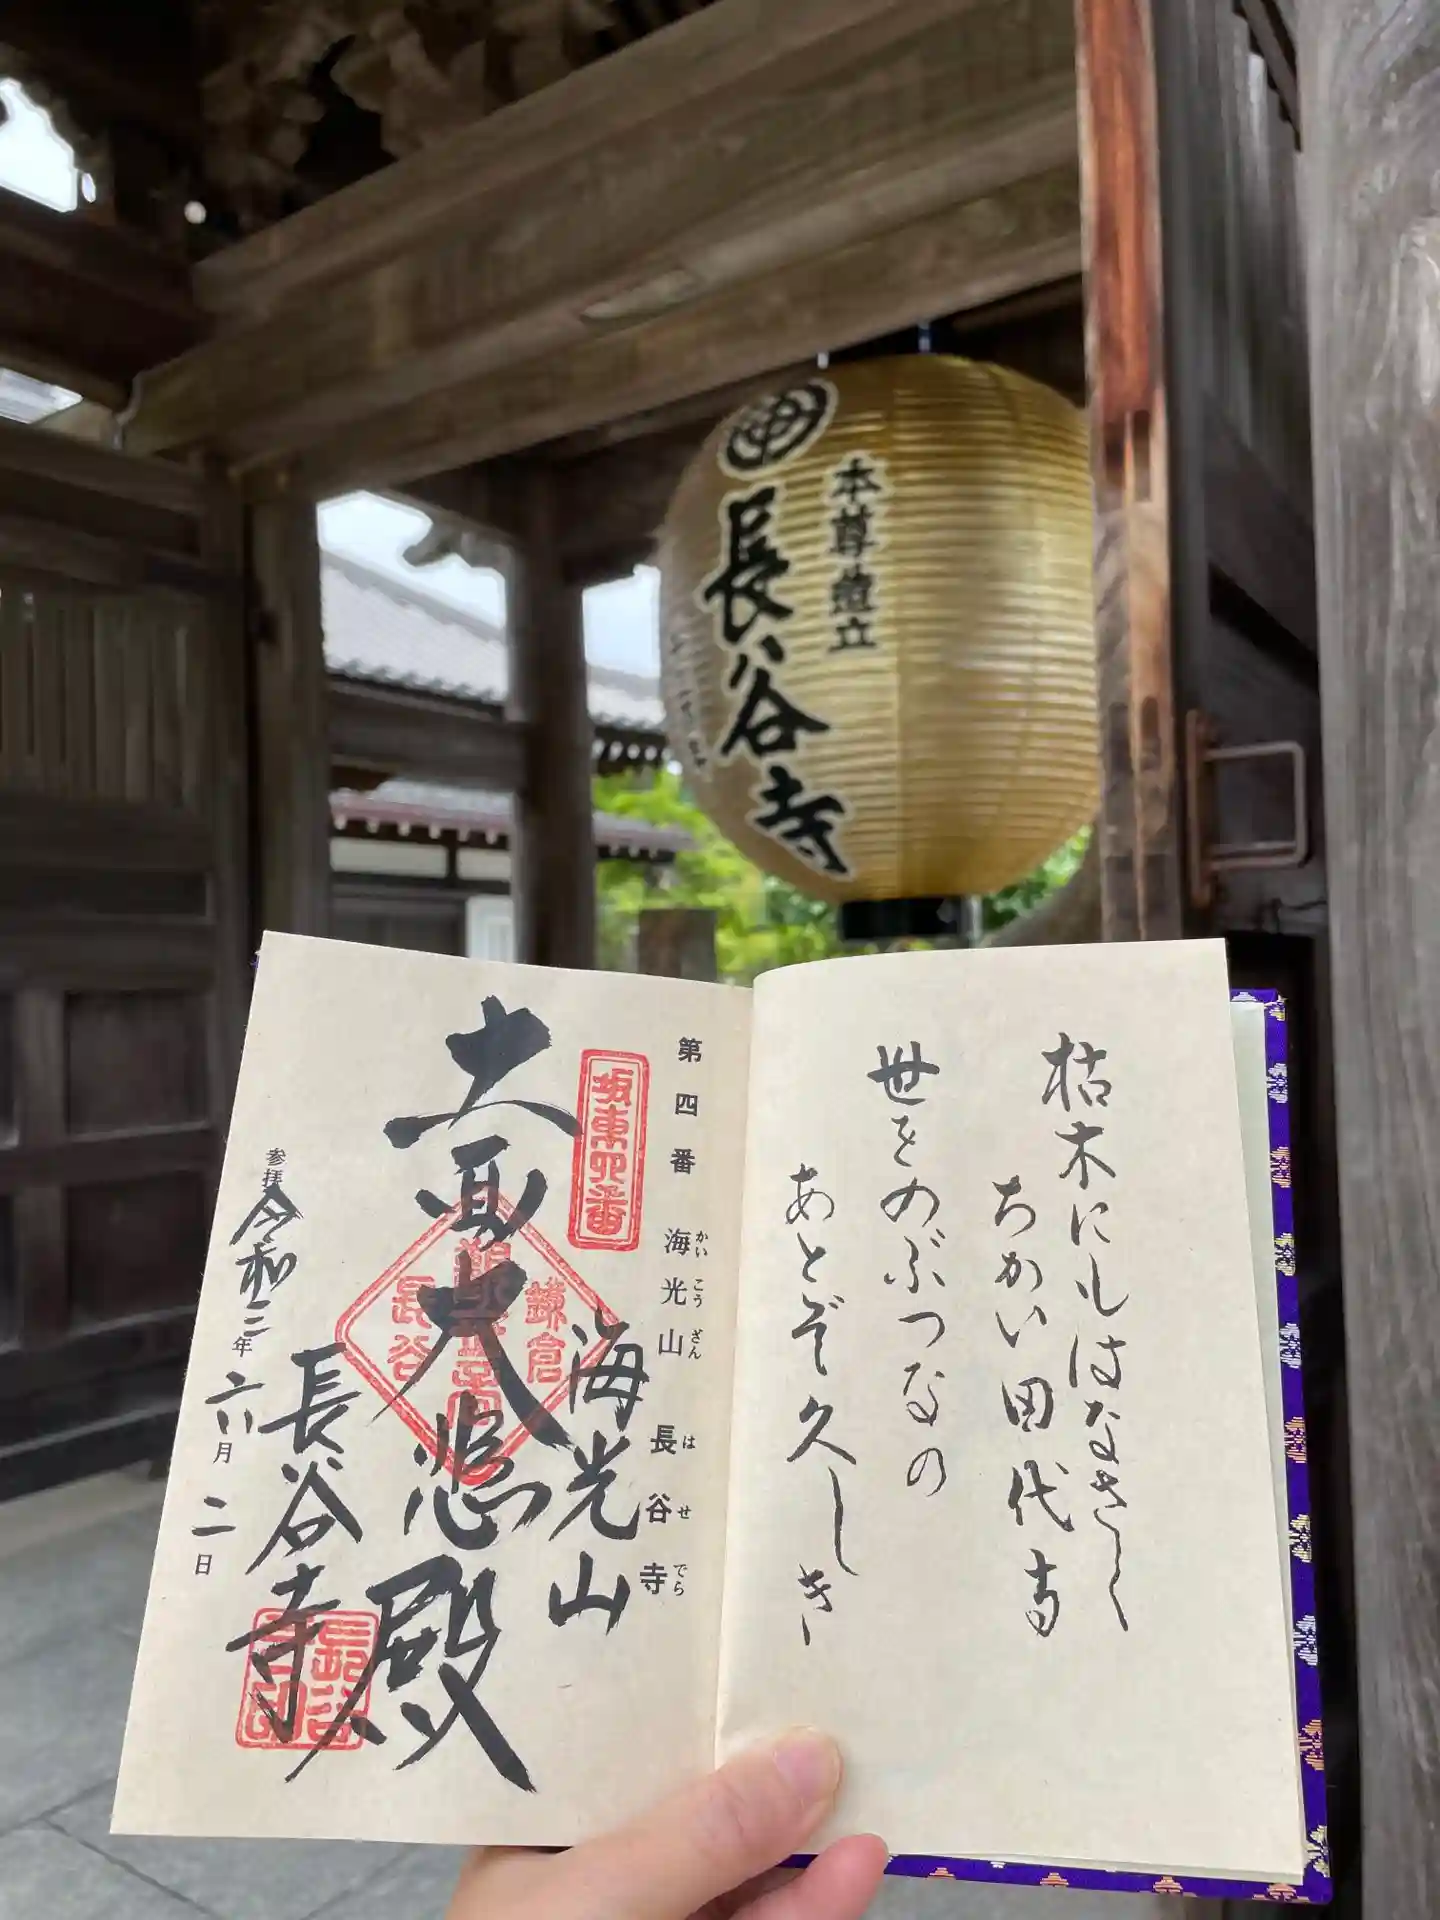 本尊造立
長谷寺
枯木にもはなさく
ちかい田代寺
世をのぶつなの
あとぞ久しき
第四番 海光山 長谷寺
かいこうざん はせでら
坂東四番
海光山
十一面大悲殿
鎌倉
長谷
長谷寺
参拝 令和二年 六月 二日